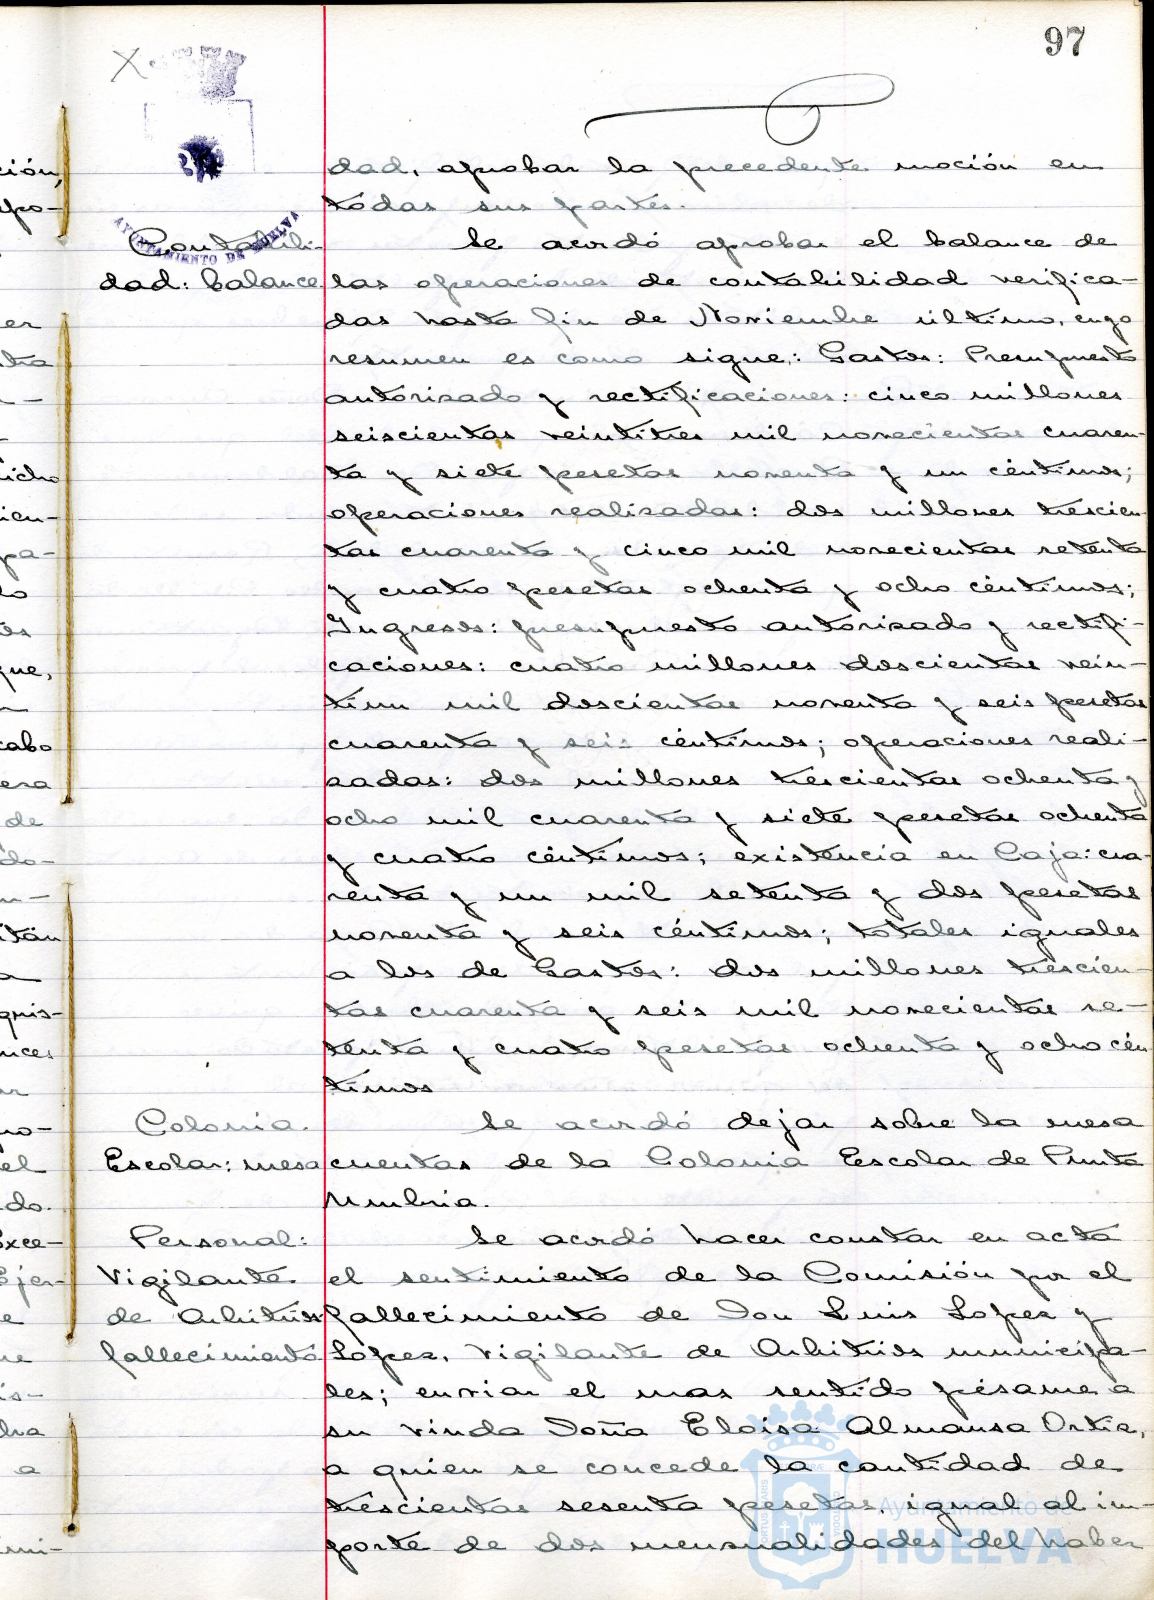 97
ción,
dad, aprobar la precedente moción en
apo-
todas sus partes.
AYUNTAMIENTO DE HUELVA
Contabili-
Se acordó aprobar el balance de
dad: balance
las operaciones de contabilidad verifica-
er
das hasta fin de Noviembre último, cuyo
resumen es como sigue: Gastos: Presupuesto
autorizado y rectificaciones: cinco millones
seiscientas veintitres mil novecientas cuaren-
icho
ta y siete pesetas noventa y un céntimos;
ien-
operaciones realizadas: dos millones trescien
pa-
tas cuarenta y cinco mil novecientas setenta
y cuatro pesetas ochenta y ocho céntimos;
Ingresos: presupuesto autorizado y rectifi-
que,
caciones: cuatro millones doscientas vein-
tiun mil doscientas noventa y seis pesetas
cabo
cuarenta y seis céntimos; operaciones reali-
era
zadas: dos millones trescientas ochenta y
de
ocho mil cuarenta y siete pesetas ochenta
do-
y cuatro céntimos; existencia en Caja: cua-
renta y un mil setenta y dos pesetas
itán
noventa y seis céntimos; totales iguales
a
a los de Gastos: dos millones trescien-
quis-
tas cuarenta y seis mil novecientas se-
nces
tenta y cuatro pesetas ochenta y ocho cén
timos
no-
Colonia
Se acordó dejar sobre la mesa
el
Escolar: mesa
cuentas de la Colonia Escolar de Punta
do.
Umbria.
Exce-
Personal:
Se acordó hacer constar en acta
Ejer-
Vigilante
el sentimiento de la Comisión por el
e
de Arbitrios
fallecimiento de Don Luis Lopez y
fallecimiento
López, Vigilante de Arbitrios municipa-
is-
les; enviar el mas sentido pésame a
su viuda Doña Eloisa Almansa Ortiz,
a
a quien se concede la cantidad de
trescientas sesenta pesetas, igual al im-
mi-
porte de dos mensualidades del haber
Ayuntamiento de
HUELVA